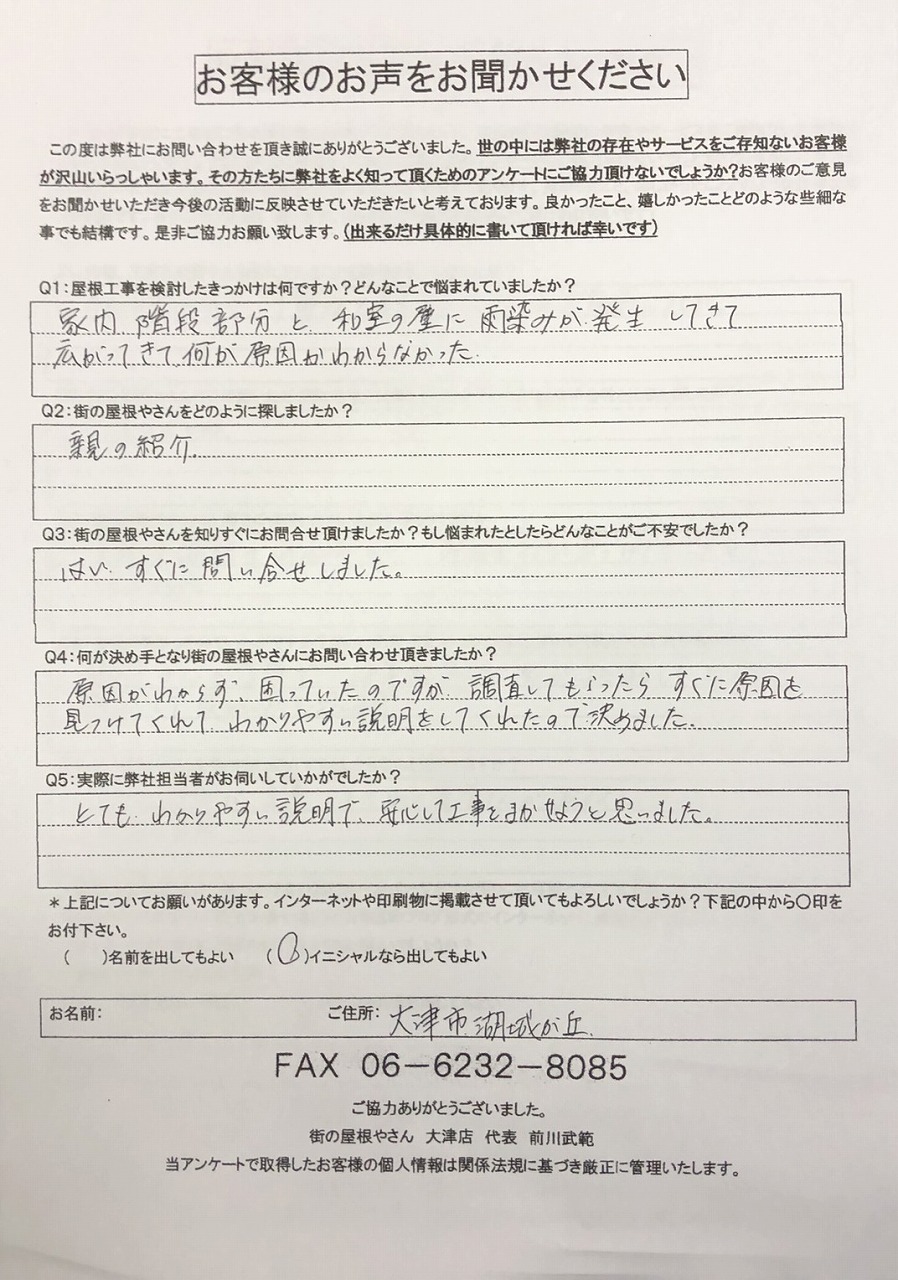 お客様のお声をお聞かせください
この度は弊社にお問い合わせを頂き誠にありがとうございました。世の中には弊社の存在やサービスをご存知ないお客様
が沢山いらっしゃいます。その方たちに弊社をよく知って頂くためのアンケートにご協力頂けないでしょうか?お客様のご意見
をお聞かせいただき今後の活動に反映させていただきたいと考えております。良かったこと、嬉しかったことどのような些細な
事でも結構です。是非ご協力お願い致します。(出来るだけ具体的に書いて頂ければ幸いです)
Q1:屋根工事を検討したきっかけは何ですか?どんなことで悩まれていましたか?
家内 階段部分と、和室の壁に雨染みが発生してきて
広がってきて、何が原因かわからなかった.
Q2:街の屋根やさんをどのように探しましたか?
親の紹介.
Q3:街の屋根やさんを知りすぐにお問合せ頂けましたか?もし悩まれたとしたらどんなことがご不安でしたか?
はい. すぐに問い合せしました。
Q4:何が決め手となり街の屋根やさんにお問い合わせ頂きましたか?
原因がわからず、困っていたのですが 調査してもらったら すぐに原因を
見つけてくれて わかりやすい説明をしてくれたので決めました.
Q5:実際に弊社担当者がお伺いしていかがでしたか?
とても わかりやすい説明で、安心して工事をまかせようと思いました。
*上記についてお願いがあります。インターネットや印刷物に掲載させて頂いてもよろしいでしょうか?下記の中から〇印を
お付下さい。
( )名前を出してもよい (〇)イニシャルなら出してもよい
お名前: ご住所: 大津市湖城が丘.
FAX 06-6232-8085
ご協力ありがとうございました。
街の屋根やさん 大津店 代表 前川武範
当アンケートで取得したお客様の個人情報は関係法規に基づき厳正に管理いたします。